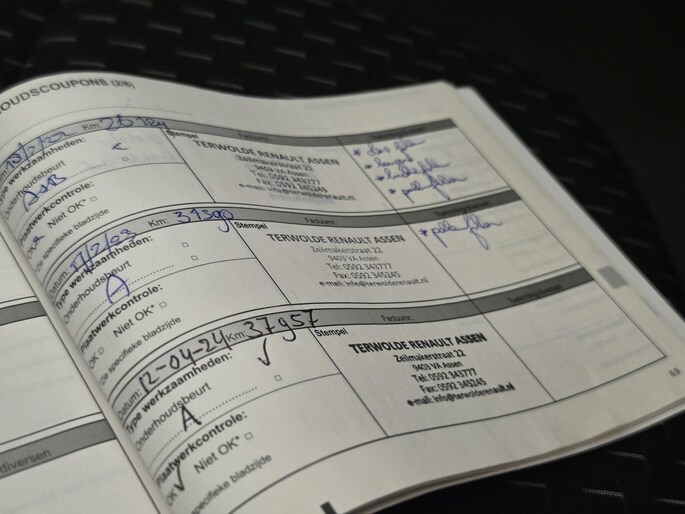 OUDSCOUPONS (2/6)
Km: Stempel Factuurnr:
Type werkzaamheden:
Onderhoudsbeurt
A+B
Plaatwerkcontrole:
OK Niet OK*
*Zie specifieke bladzijde
TERWOLDE RENAULT ASSEN
Zeilmakerstraat 22
9403 VA Assen
Tel: 0592 343777
Fax: 0592 345245
e-mail: info@terwolderenault.nl
Datum: 17/2/23 Km: 31390 Stempel Factuurnr:
Type werkzaamheden:
Onderhoudsbeurt
A
Plaatwerkcontrole:
OK Niet OK*
*Zie specifieke bladzijde
TERWOLDE RENAULT ASSEN
Zeilmakerstraat 22
9403 VA Assen
Tel: 0592 343777
Fax: 0592 345245
e-mail: info@terwolderenault.nl
Datum: 12-04-24 Km: 37957 Stempel Factuurnr:
Type werkzaamheden:
Onderhoudsbeurt
A
Plaatwerkcontrole:
OK Niet OK*
specifieke bladzijde
TERWOLDE RENAULT ASSEN
Zeilmakerstraat 22
9403 VA Assen
Tel: 0592 343777
Fax: 0592 345245
e-mail: info@terwolderenault.nl
diversen